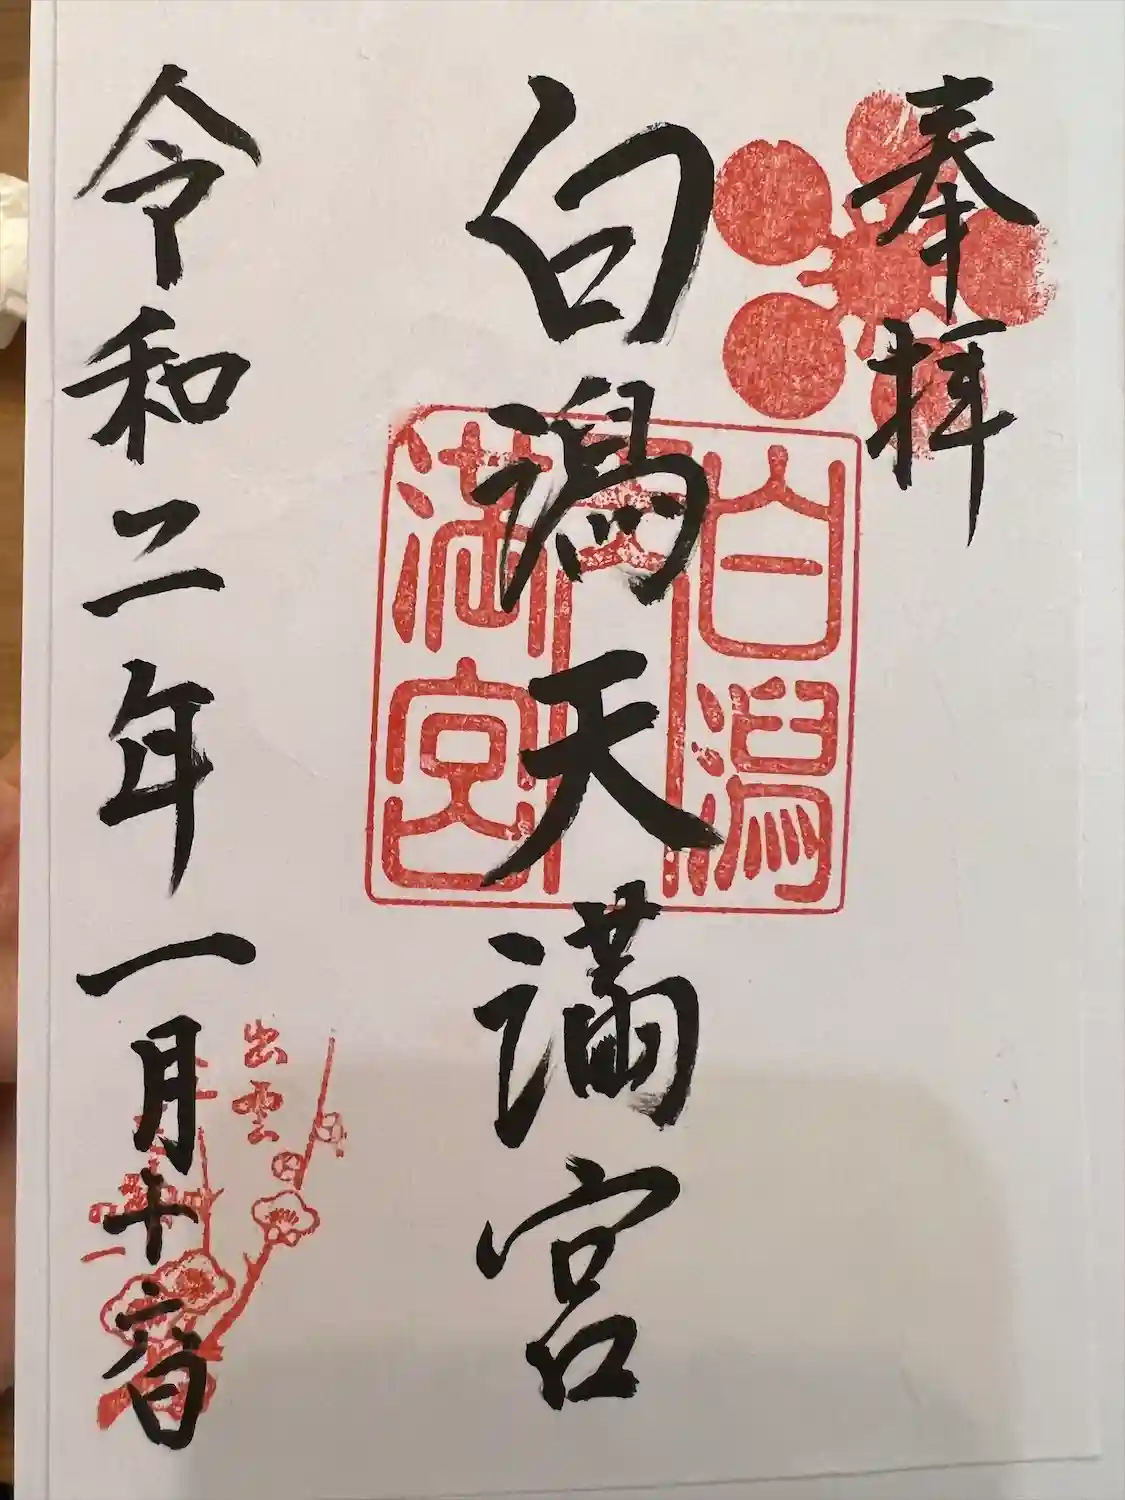 奉拝
白潟天満宮
白潟
天
満宮
令和二年一月十六日
出雲